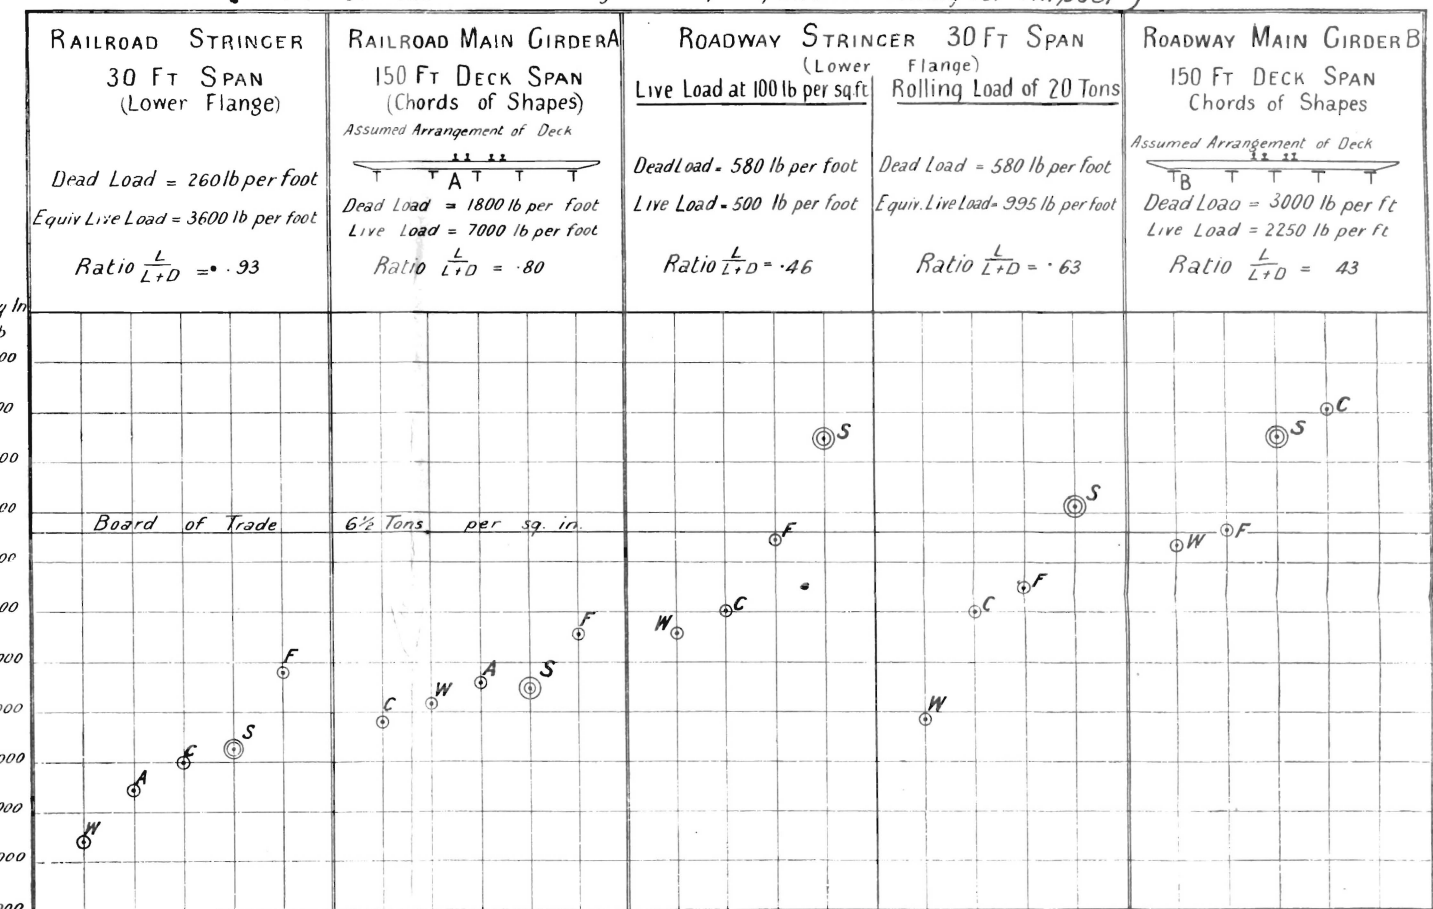 RAILROAD STRINGER
30 FT SPAN
(Lower Flange)
Dead Load = 260 lb per foot
Equiv Live Load = 3600 lb per foot
Ratio L/L+D = .93
RAILROAD MAIN GIRDER A
150 FT DECK SPAN
(Chords of Shapes)
Assumed Arrangement of Deck
A
Dead Load = 1800 lb per foot
Live Load = 7000 lb per foot
Ratio L/L+D = .80
ROADWAY STRINGER 30 FT SPAN
(Lower Flange)
Live Load at 100 lb per sq ft
Dead Load = 580 lb per foot
Live Load = 500 lb per foot
Ratio L/L+D = .46
Rolling Load of 20 Tons
Dead Load = 580 lb per foot
Equiv. Live Load = 995 lb per foot
Ratio L/L+D = .63
ROADWAY MAIN GIRDER B
150 FT DECK SPAN
Chords of Shapes
Assumed Arrangement of Deck
B
Dead Load = 3000 lb per ft
Live Load = 2250 lb per ft
Ratio L/L+D = 43
Board of Trade 6½ Tons per sq. in.
W
A
C
S
F
C
W
A
S
F
W
C
F
S
W
C
F
S
W
F
S
C